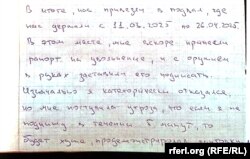 В итоге, нас привезли в подвал, где
нас держали с 11.03.2025 по 26.04.2025.
В этом месте, мне вскоре принесли
рапорт на увольнение, и с оружием
в руках заставили его подписать
Изначально я категорически отказался,
но мне поступила угроза, что если я не
подпишу в течении 5 минут, то
будет хуже, продемонстрировав
rferl.org RadioFreeEurope/RadioLiberty (RFE/RL)